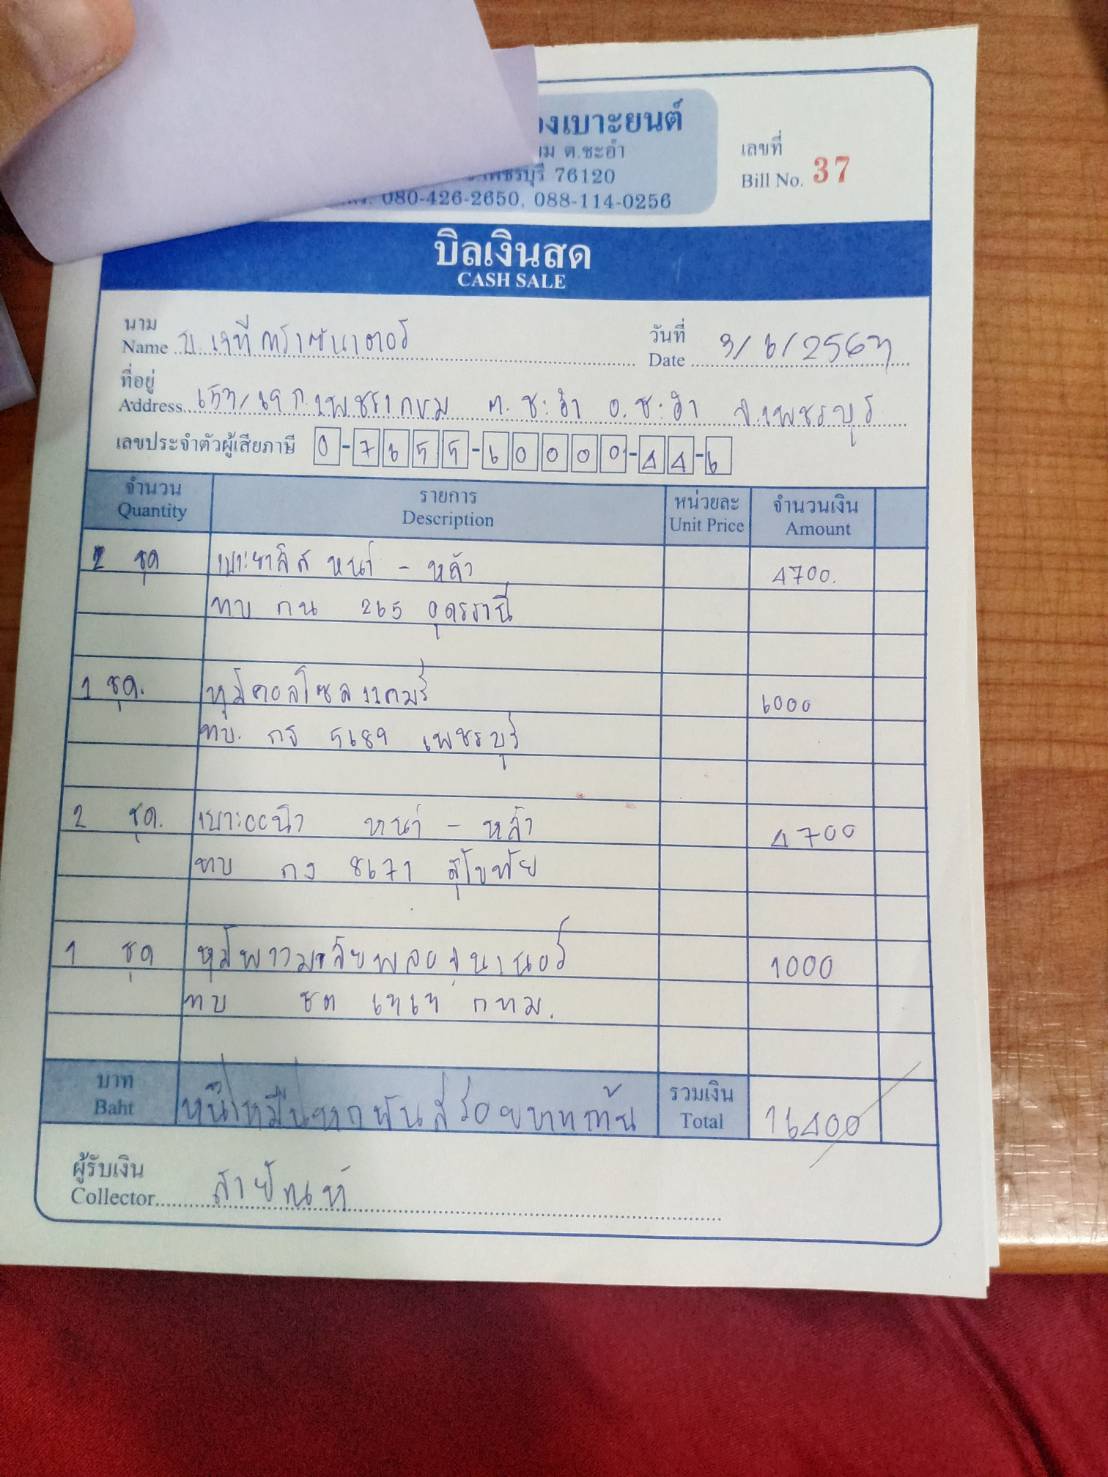 องเบาะยนต์
ต.ชะอำ
76120
080-426-2650, 088-114-0256
เลขที่
Bill No. 37
บิลเงินสด
CASH SALE
นาม
Name บ.เจที
วันที่
Date 3/6/2567
ที่อยู่
Address ถ.เพชรเกษม ต.ชะอำ อ.ชะอำ จ.เพชรบุรี
เลขประจำตัวผู้เสียภาษี 0-7655-60000-44-6
จำนวน รายการ หน่วยละ จำนวนเงิน
Quantity Description Unit Price Amount
2 ชุด เบาะยาลิส หน้า - หลัง 4700.
ทบ กน 265 อุดรธานี
1 ชุด. หุ้มคอลโซลแคมรี่ 6000
ทบ. กธ 5689 เพชรบุรี
2 ชุด. เบาะ หน้า - หลัง 4700
ทบ กง 8671 สุโขทัย
1 ชุด 1000
ทบ กทม.
บาท
Baht หนึ่งหมื่นหกพันสี่ร้อยบาทถ้วน
รวมเงิน
Total 16400
ผู้รับเงิน
Collector สายัณห์